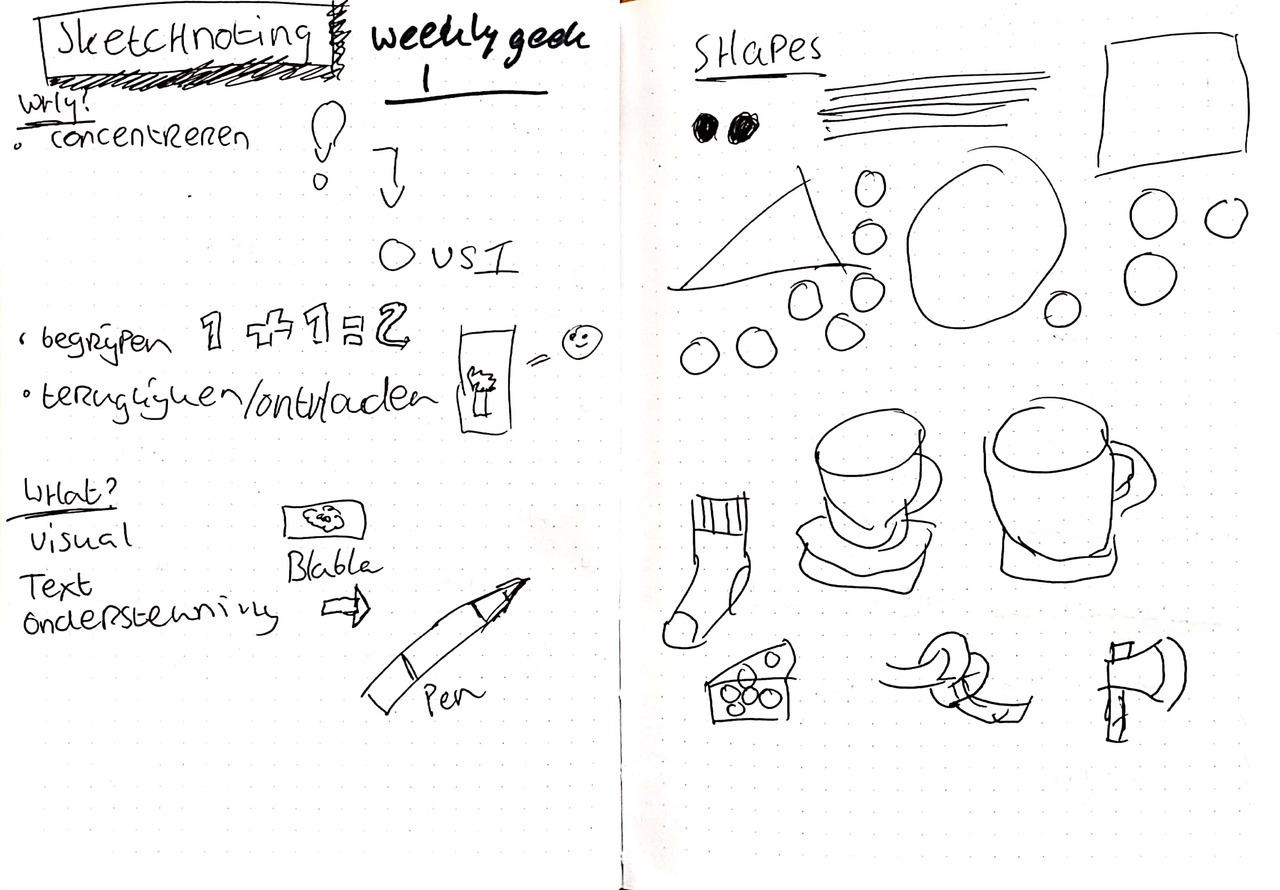 Sketchnoting
weekly geek
1
Why?
• concentreren
! 
O vs I
• begrijpen 1 + 1 = 2
• terugkijken/onthouden =
What?
visual
Blabla
Text
ondersteuning
Pen
SHAPES